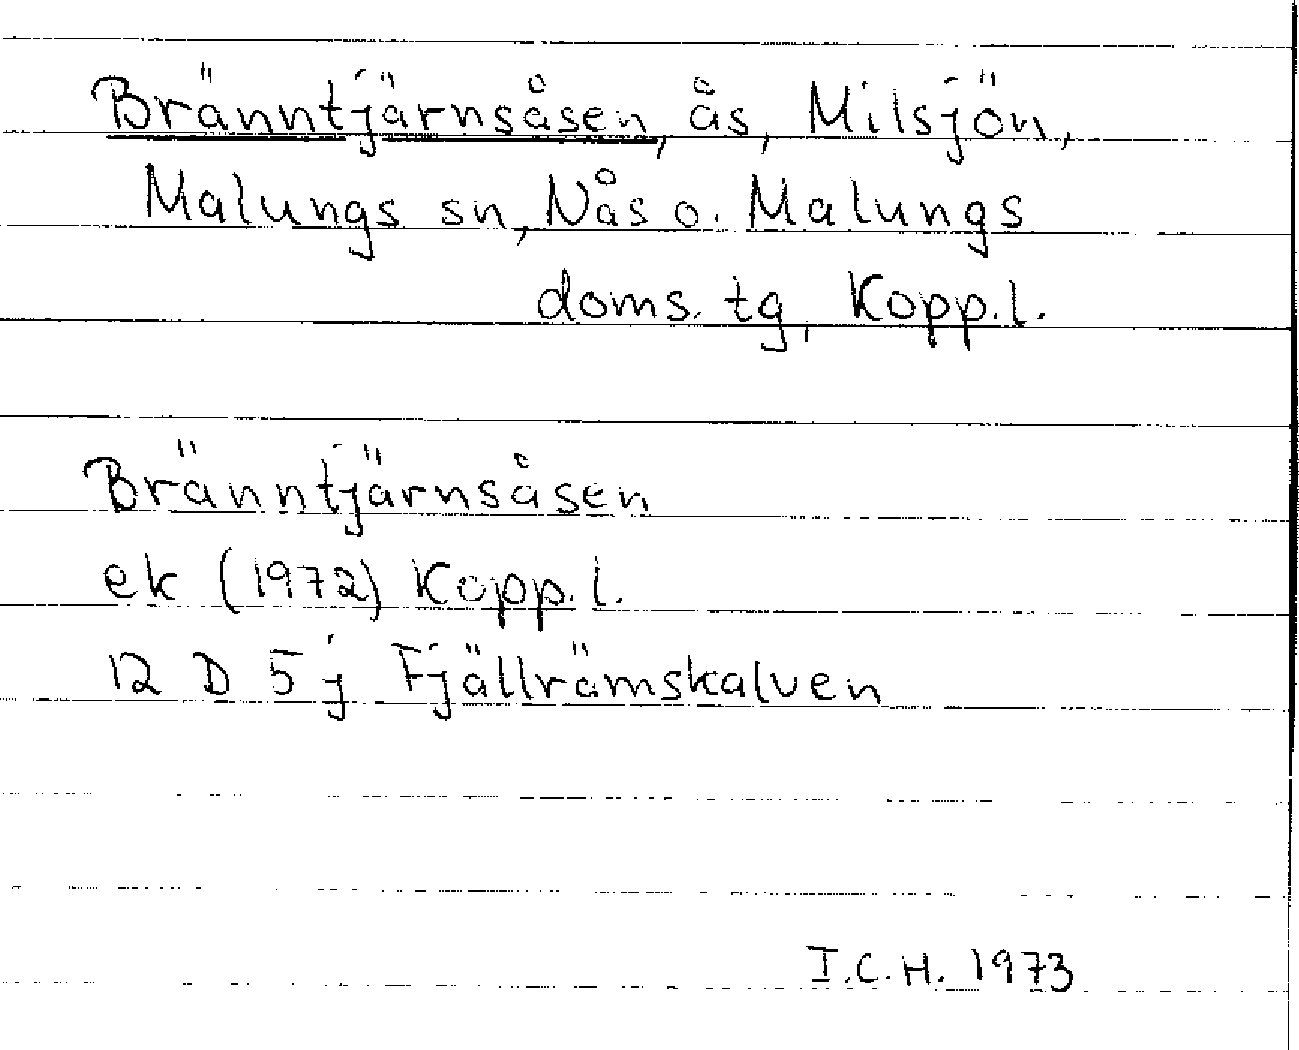 Bränntjärnsåsen, ås, Milsjön,
Malungs sn, Nås o. Malungs
doms. tg, Kopp. l.
Bränntjärnsåsen
ek (1972) Kopp. l.
12 D 5 j Fjällrämskalven
I.C.H. 1973